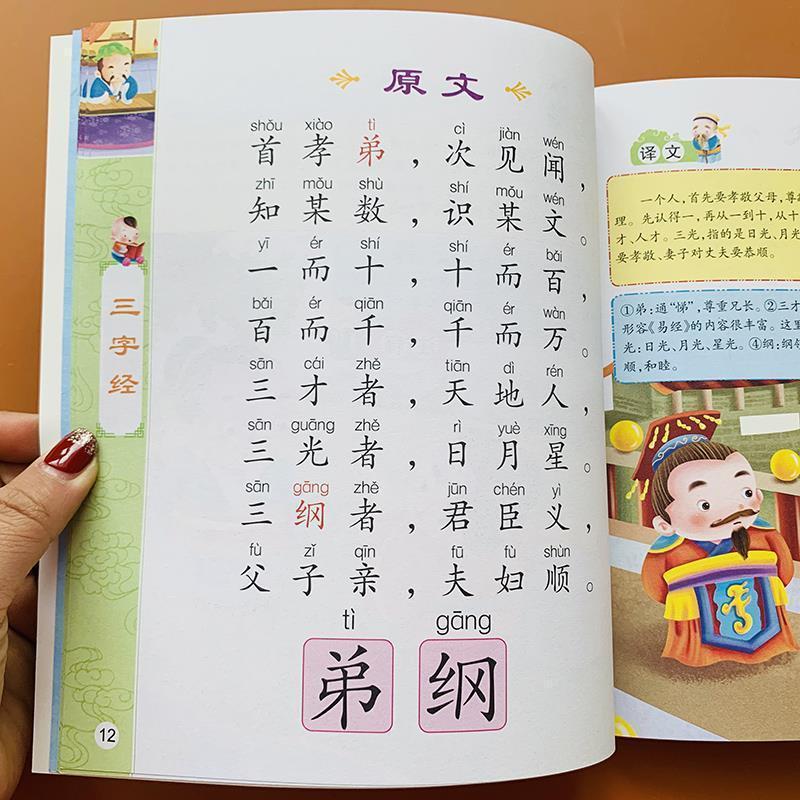 三字经
原文
shǒu xiào tì cì jiàn wén
首孝弟，次见闻，
zhī mǒu shù shí mǒu wén
知某数，识某文。
yī ér shí shí ér bǎi
一而十，十而百，
bǎi ér qiān qiān ér wàn
百而千，千而万。
sān cái zhě tiān dì rén
三才者，天地人，
sān guāng zhě rì yuè xīng
三光者，日月星。
sān gāng zhě jūn chén yì
三纲者，君臣义，
fù zǐ qīn fū fù shùn
父子亲，夫妇顺。
tì gāng
弟 纲
12
译文
一个人，首先要孝敬父母，尊
理。先认得一，再从一到十，从十
才、人才。三光，指的是日光、月光
要孝敬、妻子对丈夫要恭顺。
①弟：通“悌”，尊重兄长。②三才
形容《易经》的内容很丰富。这里
光：日光、月光、星光。④纲：纲领
顺，和睦。